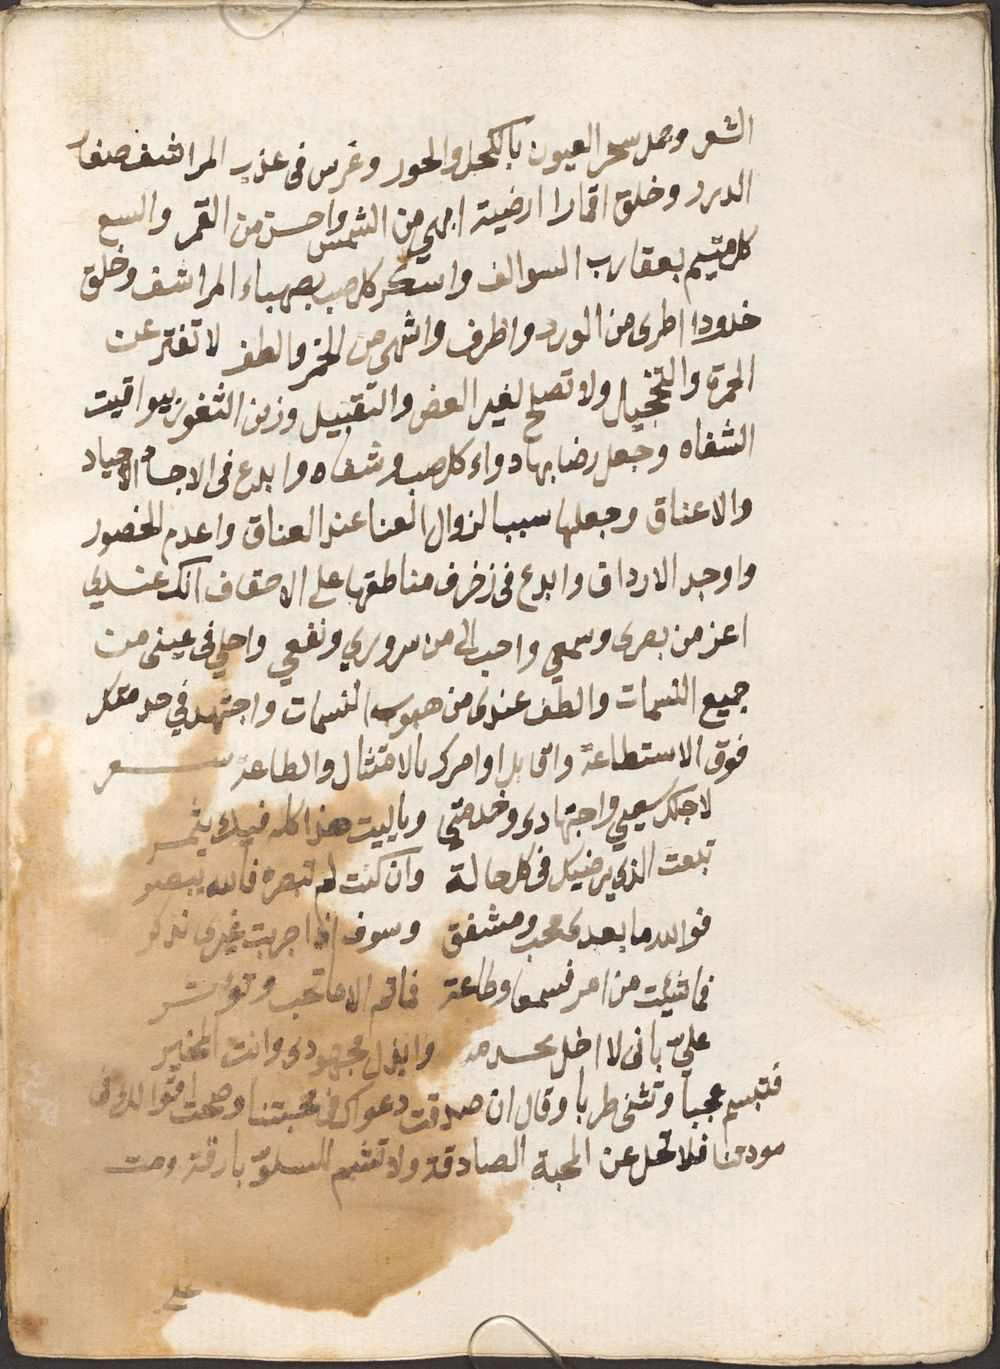 الشعر وجمل سحر العيون بالكحل والحور وغرس في عذب المراشف صغار
الدرر وخلق اقمارا ارضية ابهى من الشمس واحسن من القمر والسع
كل متيم بعقارب السوالف واسكر كل صب بصهباء المراشف وخلق
خدودا اطرى من الورد واظرف واشهى من الخمر والطف لا تفتر عن
الحمرة والتخجيل ولا تصلح لغير العض والتقبيل وزين الثغور بيواقيت
الشفاه وجعل رضابها دواء كل صب وشفاه وابدع في الاجسام الاجياد
والاعناق وجعلها سببا لزوال العنا عند العناق واعدم الخصور
واوجد الارداف وابدع في زخرف مناطقها على الاحقاف انك عندي
اعز من بصرى وسمعي واحب الى من سروري ونفعي واحلي في عينى من
جميع النسمات والطف عندى من هبوب النسمات واجتهد في خدمتك
فوق الاستطاعة واقابل اوامرك بالامتثال والطاعة شعر
لاجلك سعيي واجتهادى وخدمتي وياليت هذا كله فيك يثمر
تبعت الذي يرضيك في كل حالة وان كنت لم تبصره فالله يبصر
فوالله ما بعدى محب ومشفق وسوف اذا جربت غيرى تذكر
فما شئت من امر فسمعا وطاعة فما ثم الا ما تحب وتؤثر
عليّ بانى لا اخل بخدمة وابذل مجهودى وانت المخير
فتبسم عجبا وتثنى طربا وقال ان صدقت دعواك في محبتنا وصحت اقوالك في
مودتنا فلا تحل عن المحبة الصادقة ولا تشم للسلوّ بارقة ومت
على